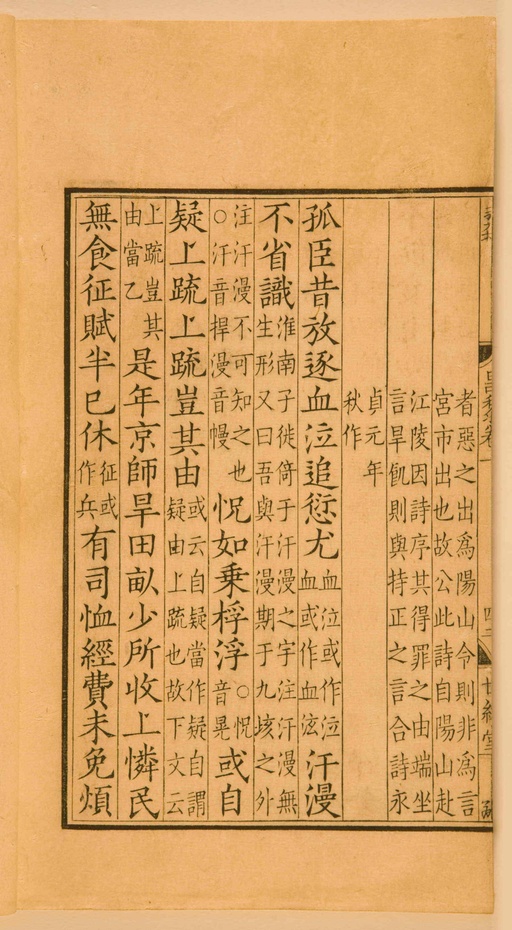 者惡之出為陽山令則非為言
宮市出也故公此詩自陽山赴
江陵因詩序其得罪之由端坐
言旱飢則與持正之言合詩永
貞元年
秋作
孤臣昔放逐血泣追愆尤血泣或作泣血或作血泫汗漫
不省識淮南子徙倚于汗漫之宇注汗漫無生形又曰吾與汗漫期于九垓之外
注汗漫不可知之也○汗音捍漫音幔怳如乗桴浮○怳音晃或自
疑上疏上疏豈其由或云自疑當作疑自謂疑由上疏也故下文云
上疏豈其由當乙是年京師旱田畝少所收上憐民
無食征賦半已休征或作兵有司恤經費未免煩